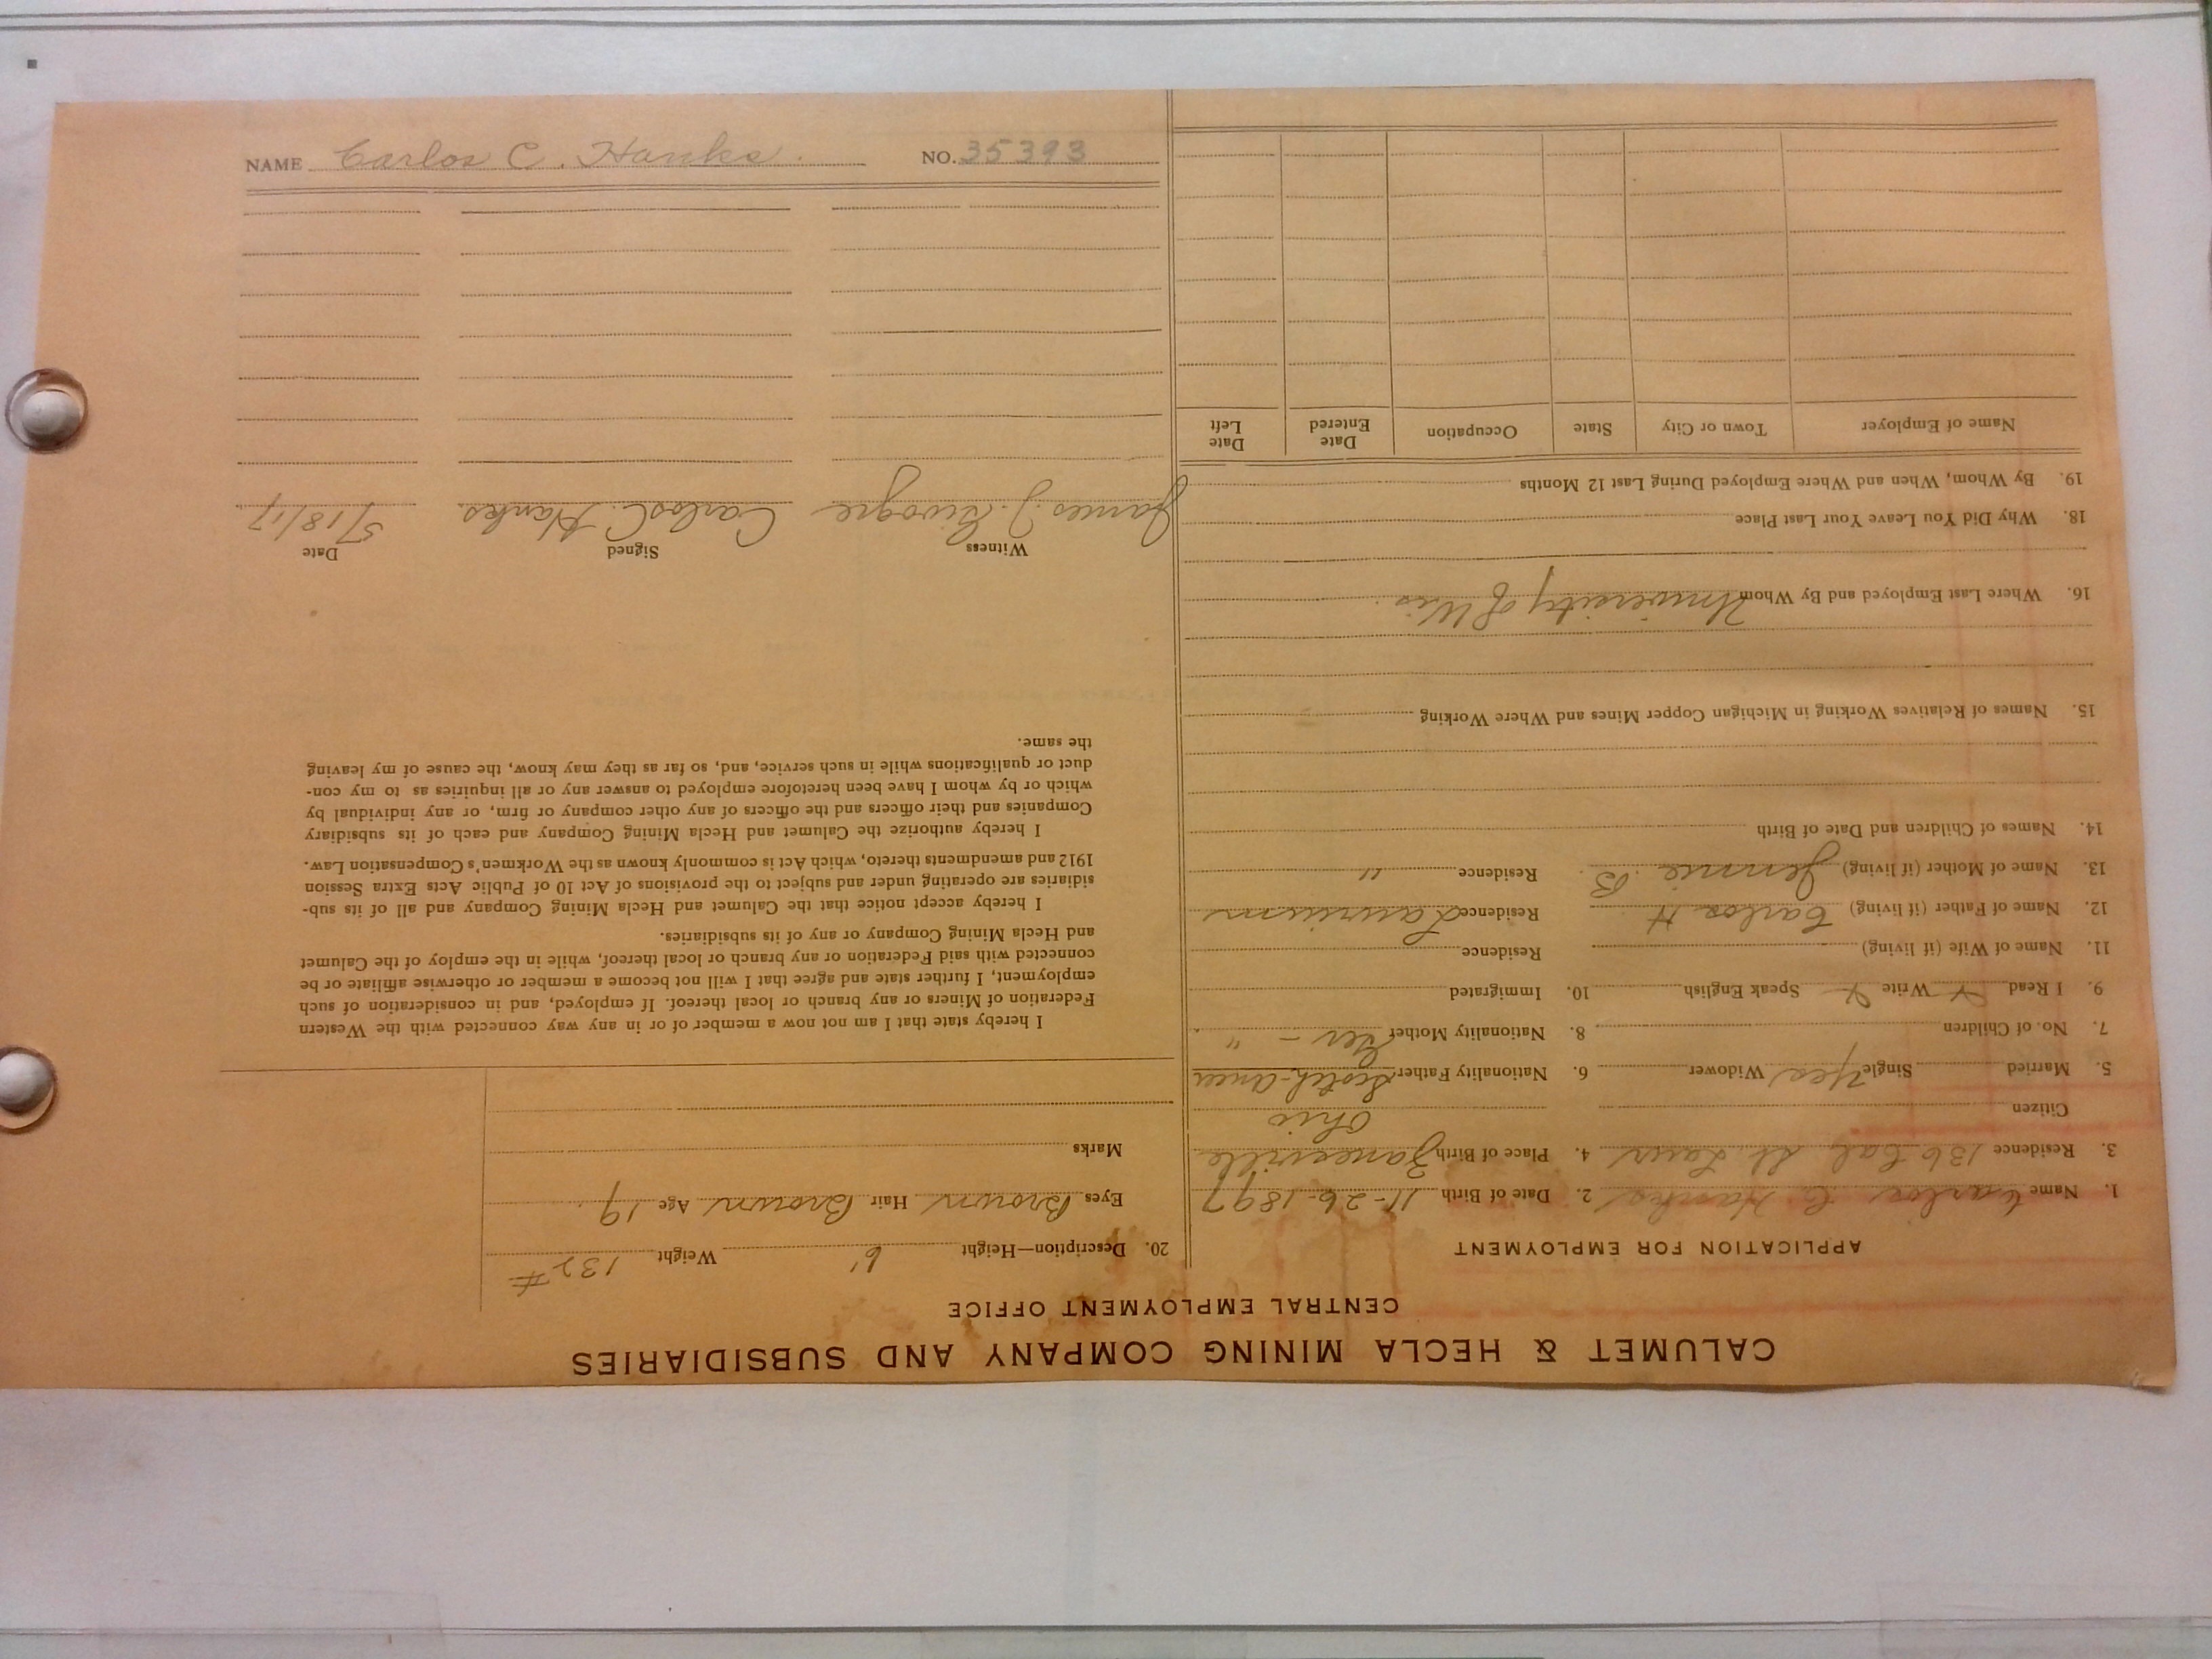 CALUMET & HECLA MINING COMPANY AND SUBSIDIARIES
CENTRAL EMPLOYMENT OFFICE
APPLICATION FOR EMPLOYMENT
1. Name Carlos C. Hanks 2. Date of Birth 11-26-1897
3. Residence 136 Cal St. Laur 4. Place of Birth Zanesville
Citizen Ohio
5. Married Single Yes Widower 6. Nationality Father Scotch-Amer
7. No. of Children 8. Nationality Mother Ger - "
9. I Read X Write X Speak English 10. Immigrated
11. Name of Wife (if living) Residence
12. Name of Father (if living) Carlos H Residence Laurium
13. Name of Mother (if living) Jennie B. Residence "
14. Names of Children and Date of Birth
15. Names of Relatives Working in Michigan Copper Mines and Where Working
16. Where Last Employed and By Whom University of Wis.
18. Why Did You Leave Your Last Place
19. By Whom, When and Where Employed During Last 12 Months
Name of Employer Town or City State Occupation Date Entered Date Left
20. Description—Height 6' Weight 132#
Eyes Brown Hair Brown Age 19
Marks
I hereby state that I am not now a member of or in any way connected with the Western
Federation of Miners or any branch or local thereof. If employed, and in consideration of such
employment, I further state and agree that I will not become a member or otherwise affiliate or be
connected with said Federation or any branch or local thereof, while in the employ of the Calumet
and Hecla Mining Company or any of its subsidiaries.
I hereby accept notice that the Calumet and Hecla Mining Company and all of its sub-
sidiaries are operating under and subject to the provisions of Act 10 of Public Acts Extra Session
1912 and amendments thereto, which Act is commonly known as the Workmen's Compensation Law.
I hereby authorize the Calumet and Hecla Mining Company and each of its subsidiary
Companies and their officers and the officers of any other company or firm, or any individual by
which or by whom I have been heretofore employed to answer any or all inquiries as to my con-
duct or qualifications while in such service, and, so far as they may know, the cause of my leaving
the same.
Witness Signed Date
James J. Carlos C. Hanks 5/18/17
NAME Carlos C. Hanks. NO. 35393